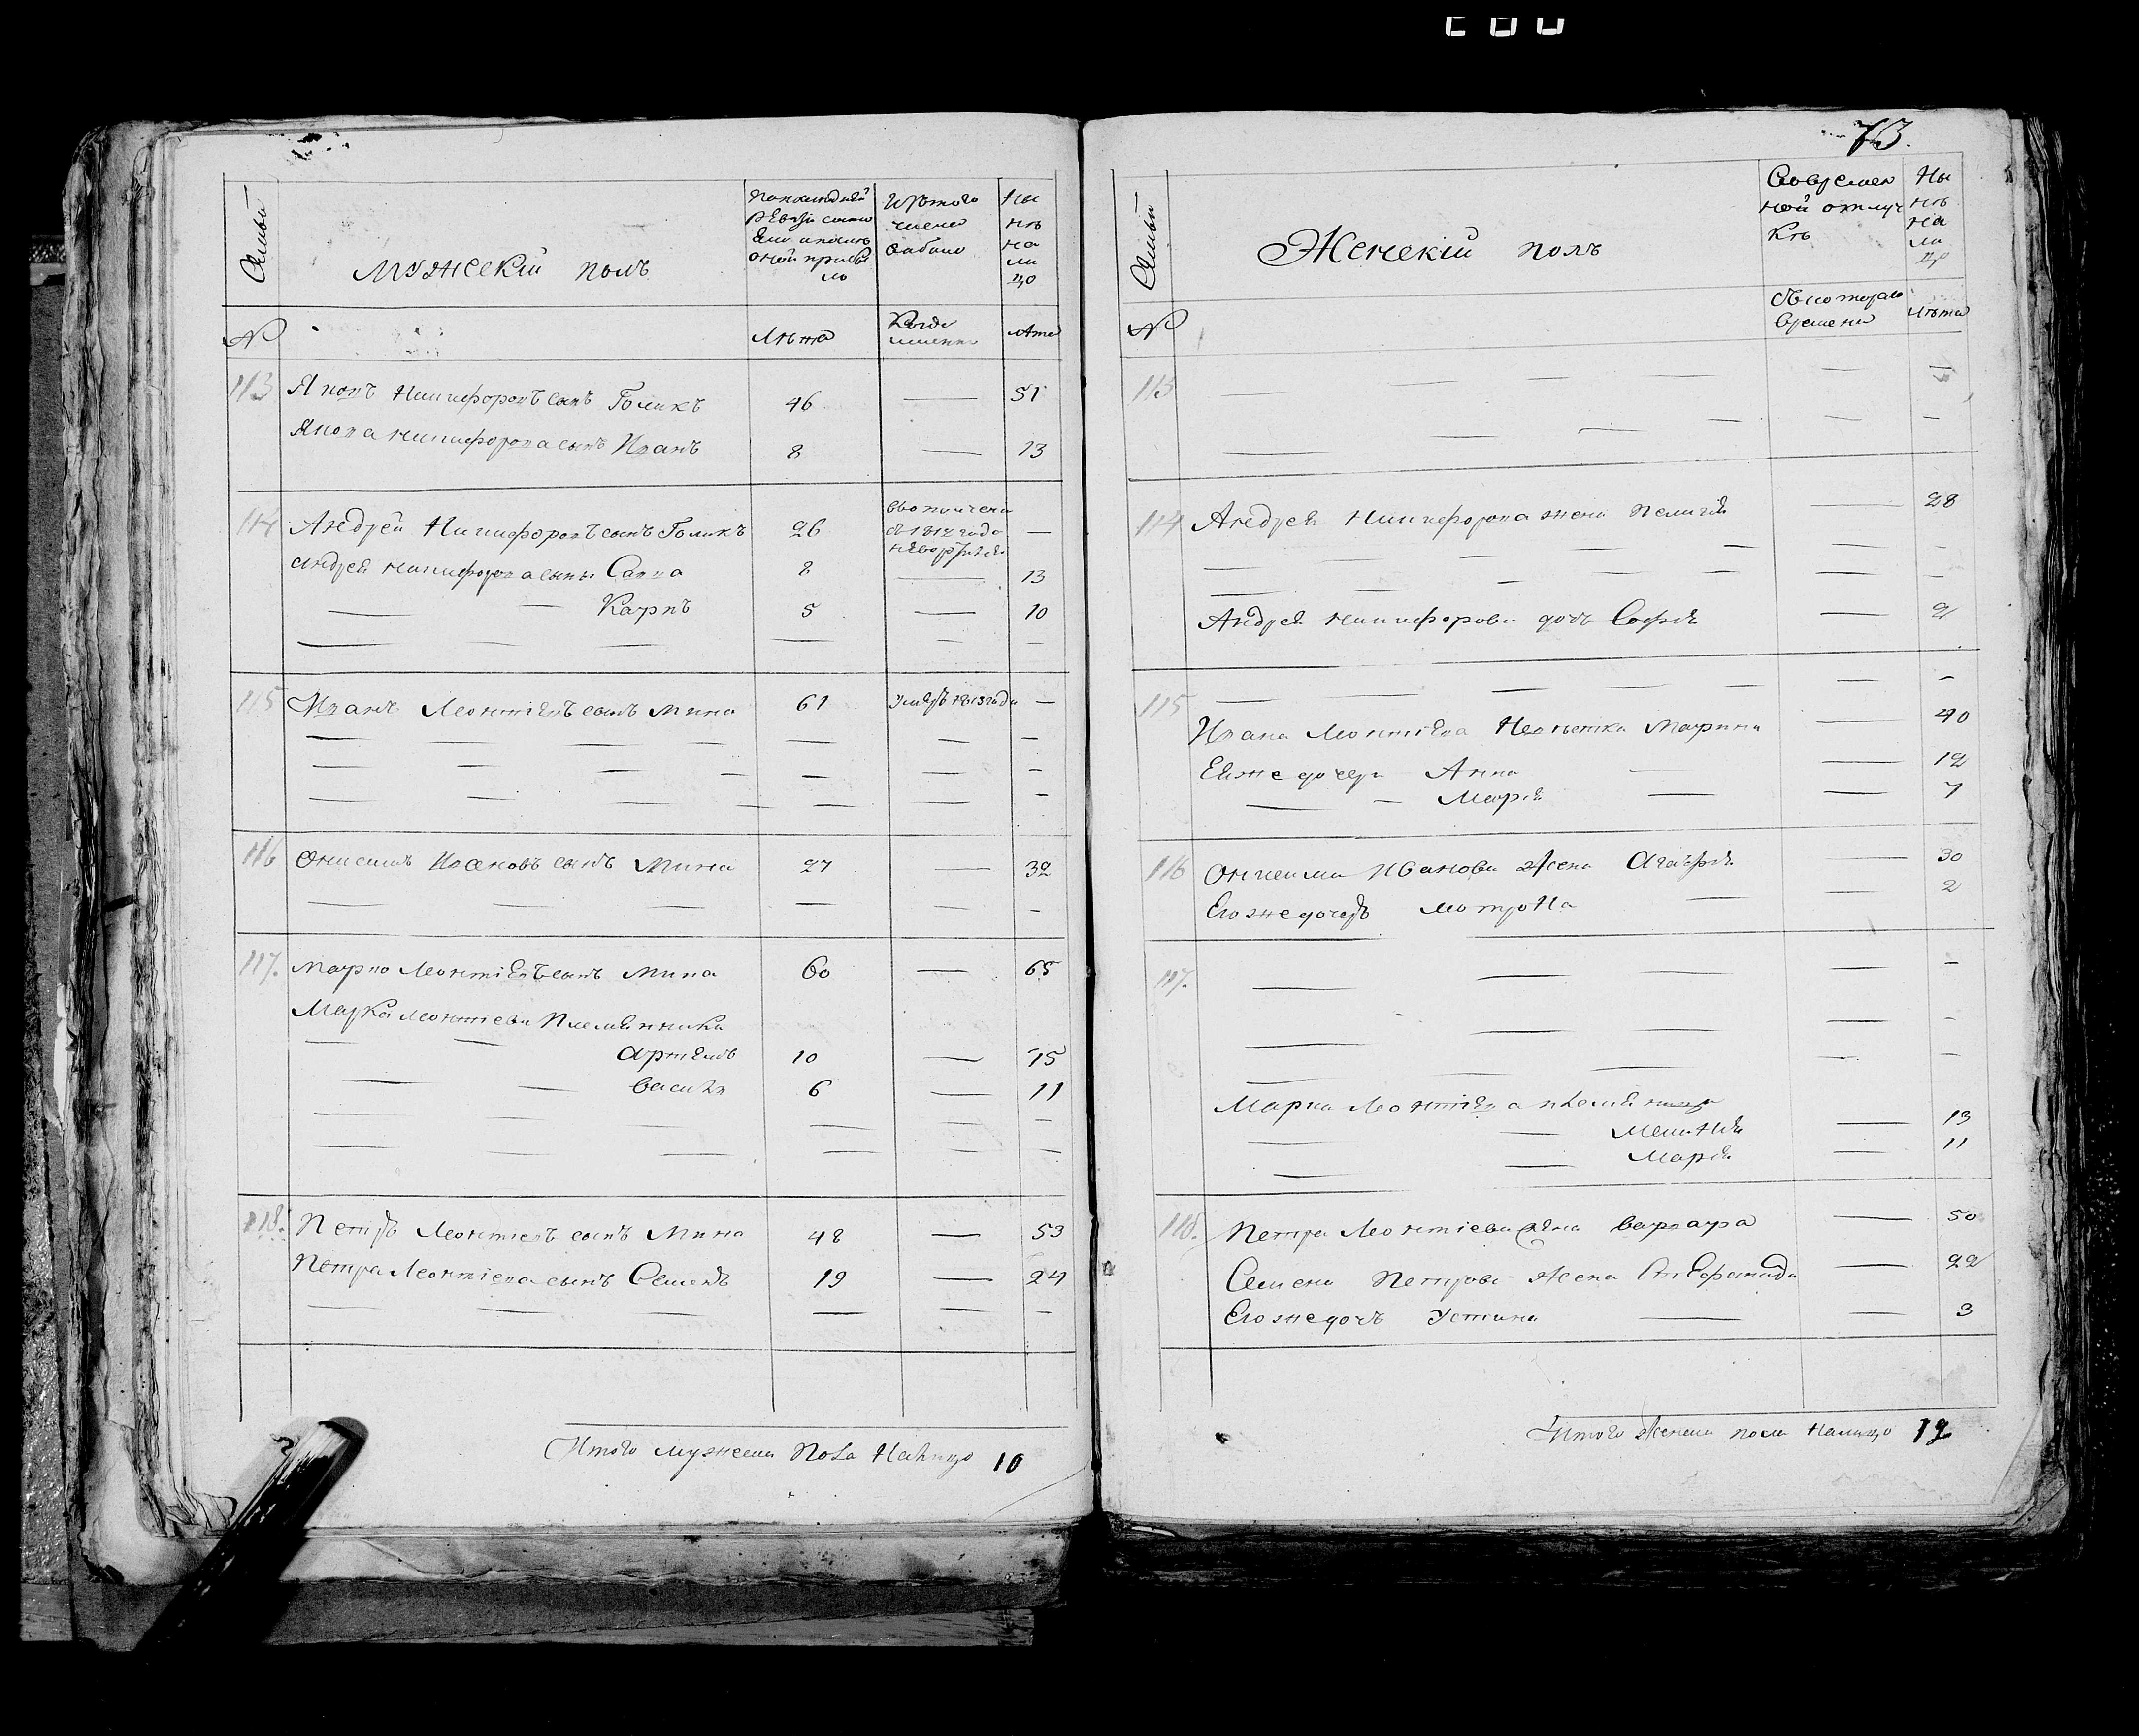 Семьи
мужескій полъ
По последней
ревизіи состо
яло и после
оной прибы
ло
Изъ того
числа
выбыло
Ны
нѣ
на
ли
цо
№
Лѣта
Когда
именно
Лѣта
113 Яковъ Никифоровъ сынъ Голикъ 46 — 51
Якова Никифорова сынъ Иванъ 8 — 13
114 Андрей Никифоровъ сынъ Голикъ 26 въ ополчении —
съ 1812 года
не возвратился
Андрея Никифорова сыны Савва 8 — 13
— — Карпъ 5 — 10
115 Иванъ Леонтіевъ сынъ Мина 61 умеръ 1813 года —
116 Онисимъ Ивановъ сынъ Мина 27 — 32
117. Марко Леонтіевъ сынъ Мина 60 — 65
Марка Леонтіева племянники
— — Артемъ 10 — 15
— — Василь 6 — 11
118. Петръ Леонтіевъ сынъ Мина 48 — 53
Петра Леонтіева сынъ Семенъ 19 — 24
Итого мужеска пола налицо 10
73.
Семьи
Женскій полъ
Во времен
ной отлуч
кѣ
Ны
нѣ
на
ли
цо
№
Съ котораго
времени
Лѣта
113
114 Андрея Никифорова жена Пелагія — 28
Андрея Никифорова дочь Софія — 9
115
Ивана Леонтіева Невѣстка Марина — 40
Ея же дочери Анна — 12
— — Марія — — 7
116 Онисима Иванова жена Агафія — 30
Его же дочерь Мотрона — — 2
117.
Марка Леонтіева племянницы
— — Меланія — 13
— — Марія — 11
118. Петра Леонтіева жена Варвара — 50
Семена Петрова жена Стефанида — 22
Его же дочь Устина — — 3
Итого женска пола налицо 12